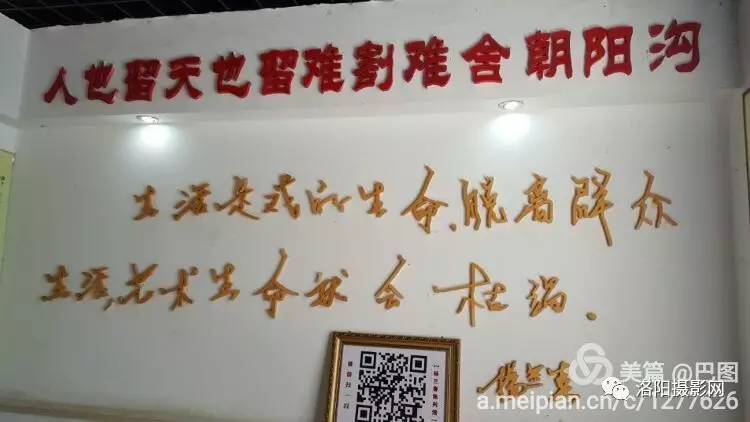 人也留天也留难割难舍朝阳沟
生活是戏的生命、脱离群众
生活,艺术生命就会枯竭.
杨兰春
美篇 @巴图
洛阳摄影网
a.meipian.cn/c/1277626